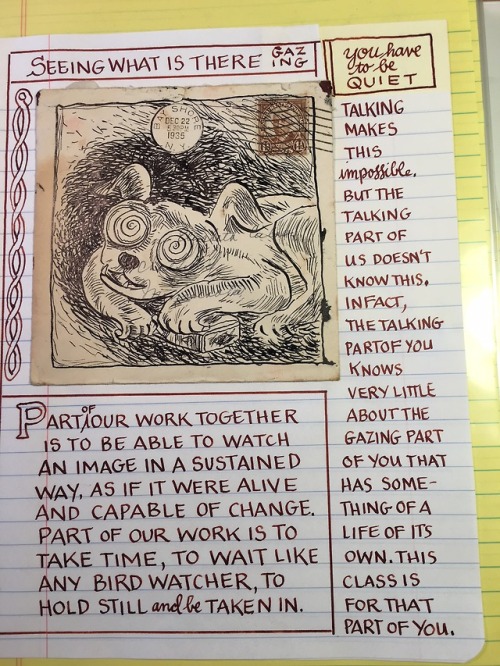 SEEING WHAT IS THERE GAZ
ING
you have
to be
QUIET
BAY SHORE
DEC 22
5 30 PM
1935
N.Y.
TALKING
MAKES
THIS
impossible.
BUT THE
TALKING
PART OF
US DOESN'T
KNOW THIS.
IN FACT,
THE TALKING
PART OF YOU
KNOWS
VERY LITTLE
ABOUT THE
GAZING PART
OF YOU THAT
HAS SOME-
THING OF A
LIFE OF ITS
OWN. THIS
CLASS IS
FOR THAT
PART OF YOU.
PART OF OUR WORK TOGETHER
IS TO BE ABLE TO WATCH
AN IMAGE IN A SUSTAINED
WAY, AS IF IT WERE ALIVE
AND CAPABLE OF CHANGE.
PART OF OUR WORK IS TO
TAKE TIME, TO WAIT LIKE
ANY BIRD WATCHER, TO
HOLD STILL and be TAKEN IN.